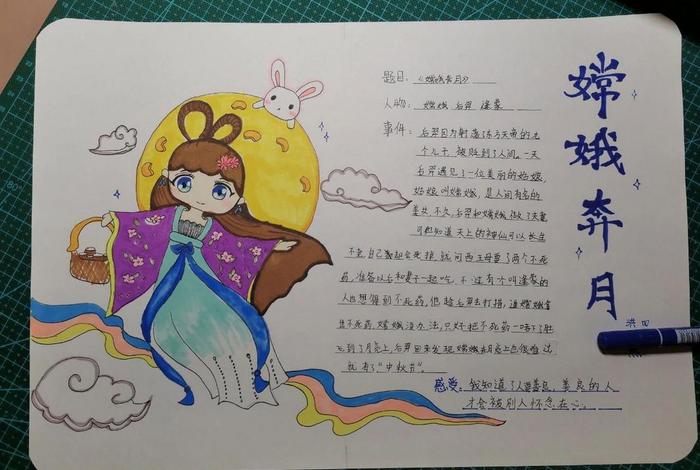 嫦娥奔月
题目:《嫦娥奔月》
人物: 嫦娥 后羿 逢蒙
事件: 后羿因为射落了天帝的九
个儿子, 被贬到了人间。一天
后羿遇见了一位美丽的姑娘,
姑娘叫嫦娥, 是人间有名的
美女, 不久, 后羿和嫦娥做了夫妻
可他知道天上的神仙可以长生
不老, 自己 就会死掉, 就向西王母要了两个不死
药, 准备以后和妻子一起吃, 不过有个叫逢蒙的
人也想得到不死药, 他趁后羿去打猎, 逼嫦娥拿
出不死药, 嫦娥没办法, 只好把不死药一吞了了
到了月亮上, 后羿回来发现嫦娥在月亮上也很难过
就有了"中秋节"。
感受: 我知道了人要善良, 善良的人
才会被别人怀念在心。